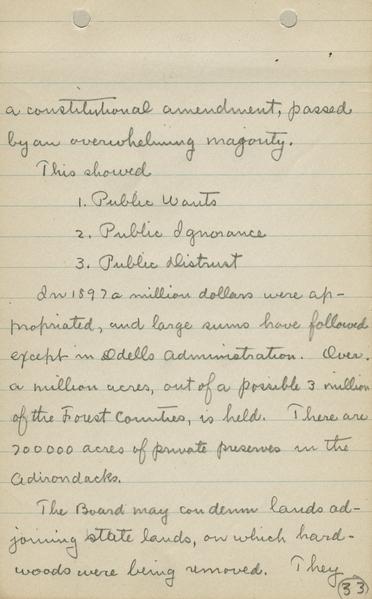 a constitutional amendment, passed
by an overwhelming majority.
This showed
1. Public Wants
2. Public Ignorance
3. Public Distrust
In 1897 a million dollars were ap-
propriated, and large sums have followed
except in Odells administration. Over
a million acres, out of a possible 3 million
of the Forest Counties, is held. There are
700000 acres of private preserves in the
Adirondacks.
The Board may condemn lands ad-
joining state lands, on which hard-
woods were being removed. They
33